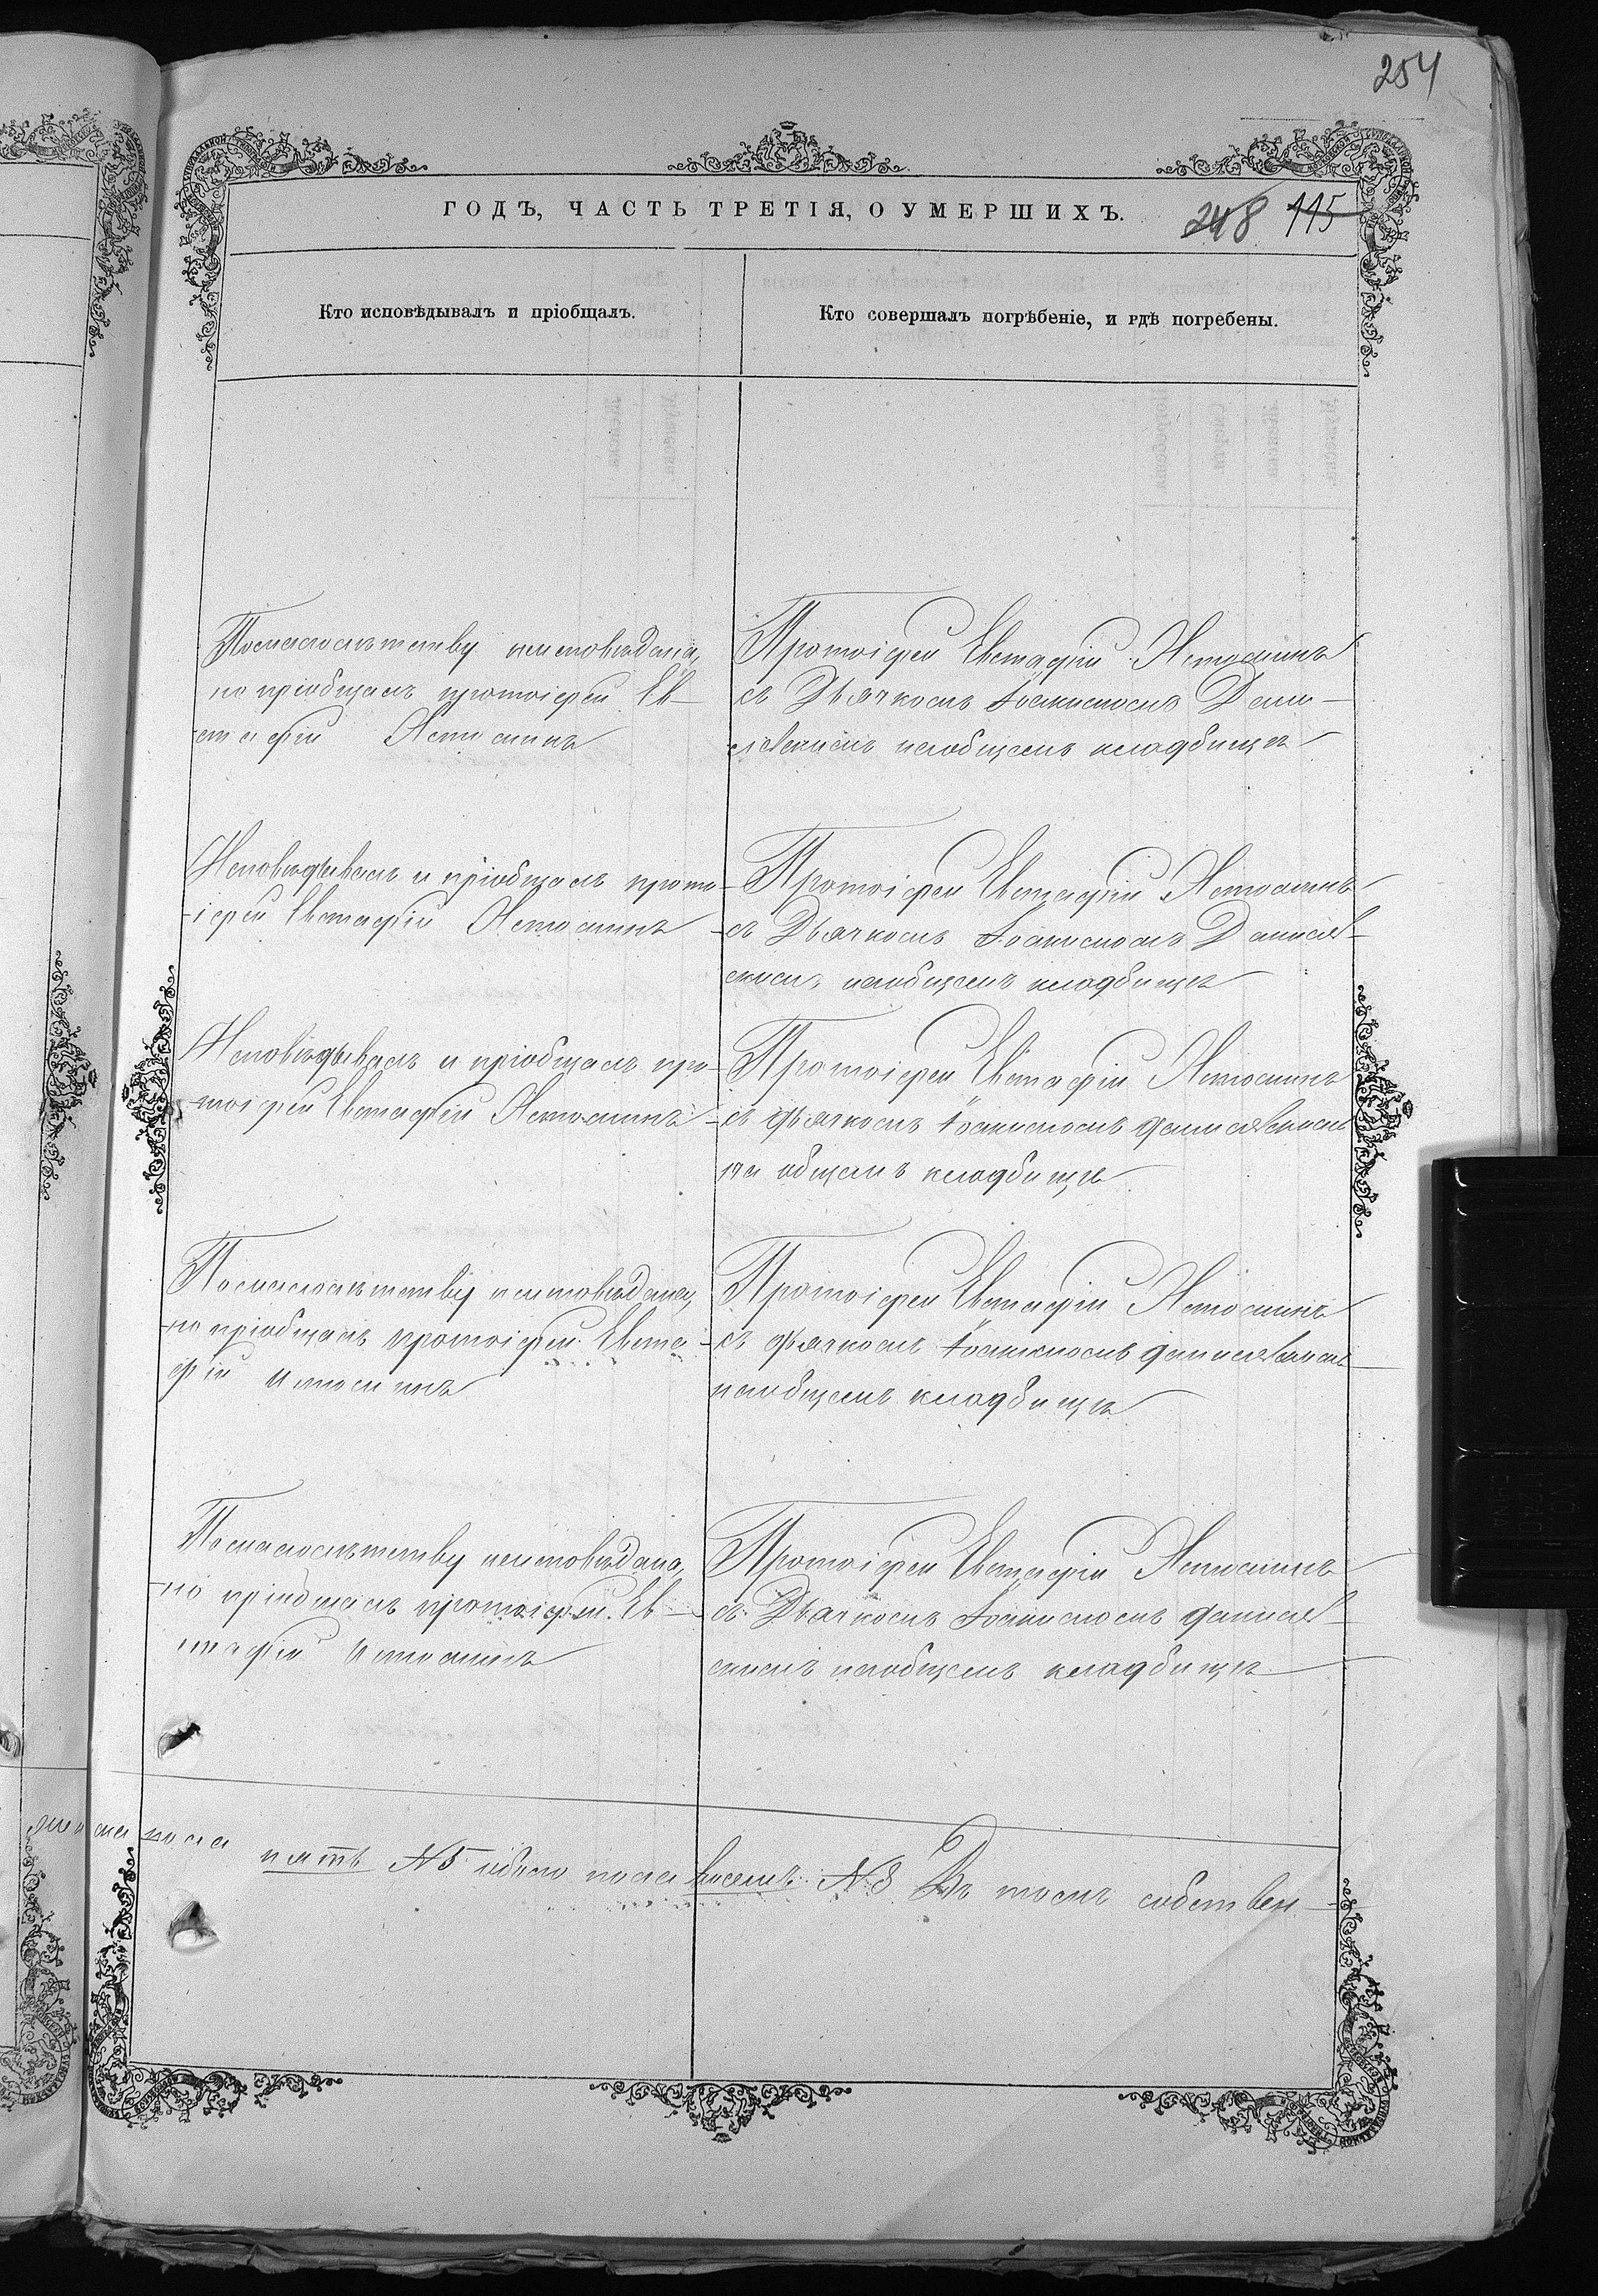 254
ГОДЪ, ЧАСТЬ ТРЕТІЯ, О УМЕРШИХЪ.
248 115
Кто исповѣдывалъ и пріобщалъ.
Кто совершалъ погрѣбеніе, и гдѣ погребены.
Помалолѣтству неисповѣдана,
но пріобщалъ протоіерей Ев-
стафій Истоминъ
Протоіерей Евстафій Истоминъ
съ Дьячкомъ Іоакимомъ Дани-
левскимъ наобщемъ кладбищѣ
Исповѣдывалъ и пріобщалъ прото-
іерей Евстафій Истоминъ
Протоіерей Евстафій Истоминъ
съ Дьячкомъ Іоакимомъ Данилев-
скимъ наобщемъ кладбищѣ
Исповѣдывалъ и пріобщалъ про-
тоіерей Евстафій Истоминъ
Протоіерей Евстафій Истоминъ
съ дьячкомъ Іоакимомъ данилевскимъ
на общемъ кладбищѣ
Помалолѣтству неисповѣдана,
но пріобщалъ протоіерей Евста-
фій Истоминъ
Протоіерей Евстафій Истоминъ
съ дьячкомъ Іоакимомъ данилевскимъ
наобщемъ кладбищѣ
Помалолѣтству неисповѣдана,
но пріобщалъ протоіерей Ев-
стафій Истоминъ
Протоіерей Евстафій Истоминъ
съ Дьячкомъ Іоакимомъ данилев-
скимъ наобщемъ кладбищѣ
пола пять № 5 обоего пола восемь № 8 Въ томъ собствен-